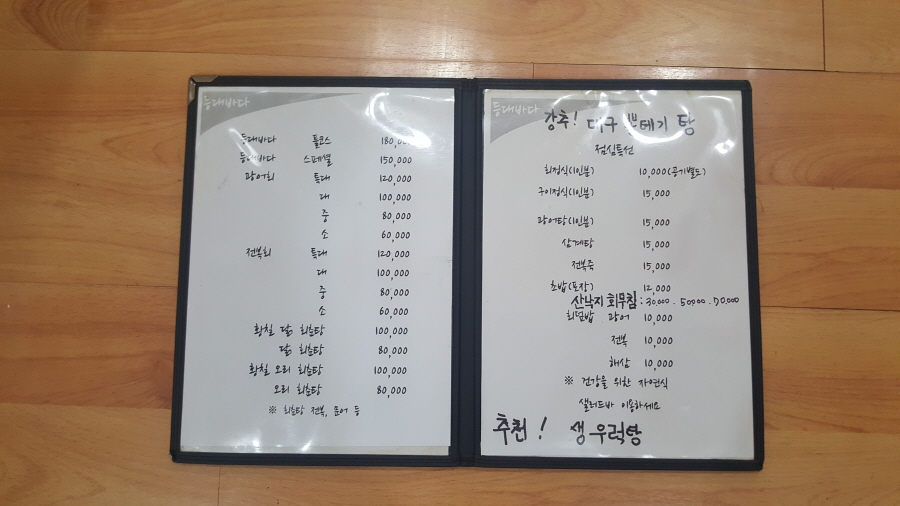 등대바다
등대바다 풀코스 180,000
등대바다 스페셜 150,000
광어회 특대 120,000
대 100,000
중 80,000
소 60,000
전복회 특대 120,000
대 100,000
중 80,000
소 60,000
황칠 닭 회춘탕 100,000
닭 회춘탕 80,000
황칠 오리 회춘탕 100,000
오리 회춘탕 80,000
※ 회춘탕 전복, 문어 등
등대바다
강추! 대구 뽀데기 탕
점심특선
회정식(1인분) 10,000(공기별도)
구이정식(1인분) 15,000
광어탕(1인분) 15,000
삼계탕 15,000
전복죽 15,000
초밥(포장) 12,000
산낙지 회무침 : 30000 . 50000 . 70,000
회덮밥 광어 10,000
전복 10,000
해삼 10,000
※ 건강을 위한 자연식
샐러드바 이용하세요
추천! 생 우럭탕